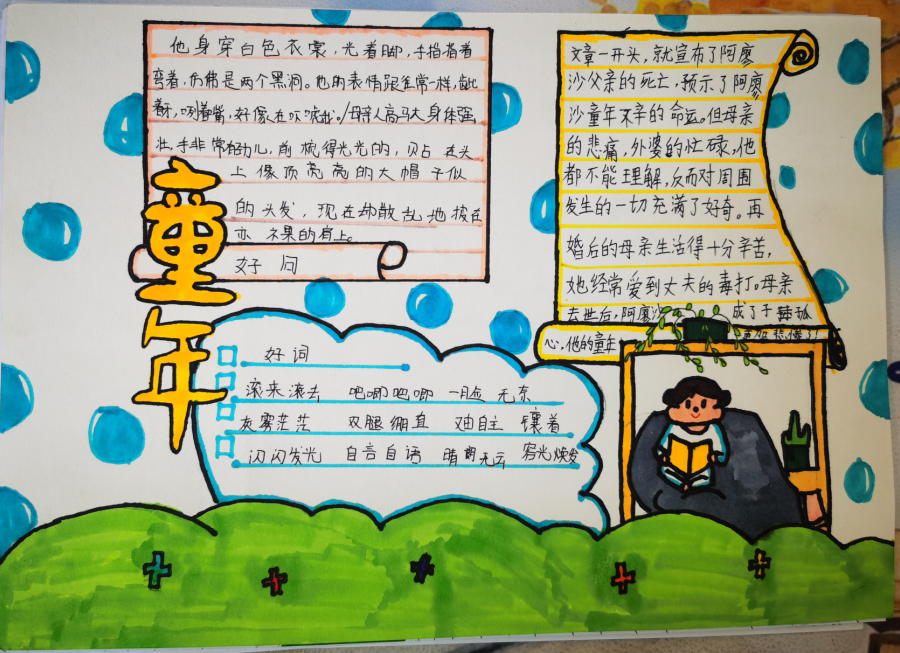 他身穿白色衣裳，光着脚，手指着着
弯着，仿佛是两个黑洞。他的表情跟往常一样，龇
着牙，咧着嘴，好像在吓唬我。母亲人高马大身体强
壮，手非常有劲儿，前梳得光光的，贴在头
上像顶亮亮的大帽子似
的头发，现在却散乱地披在
赤裸的肩上。
好问
童年
文章一开头，就宣布了阿廖
沙父亲的死亡，预示了阿廖
沙童年不幸的命运。但母亲
的悲痛，外婆的忙碌，他
都不能理解，反而对周围
发生的一切充满了好奇。再
婚后的母亲生活得十分辛苦，
她经常爱到丈夫的毒打。母亲
去世后，阿廖沙 成了孤
心，他的童年 悲惨了！
好词
滚来滚去 吧唧吧唧 一脸无奈
灰雾茫茫 双腿绷直 自主 镶着
闪闪发光 自言自语 晴朗无云 容光焕发